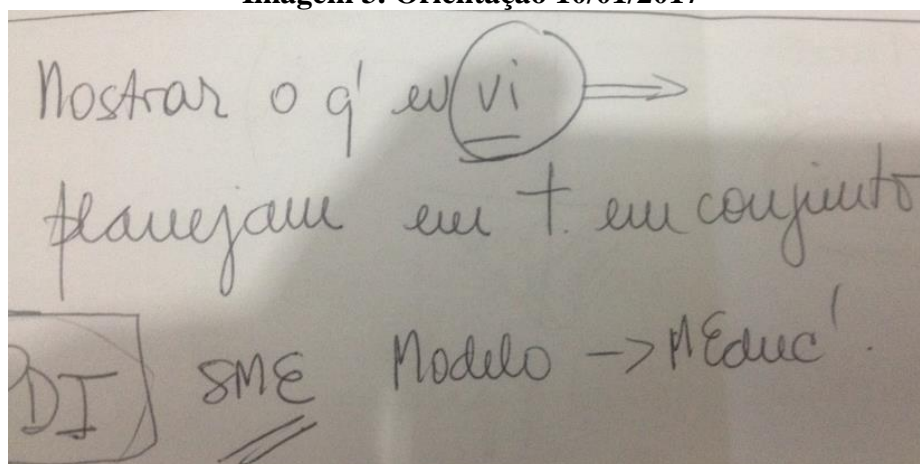 Imagem 3: Orientação 10/01/2017
Mostrar o q' eu vi ⇒
planejam em t. em conjunto
PDI SME Modelo -> MEduc'.